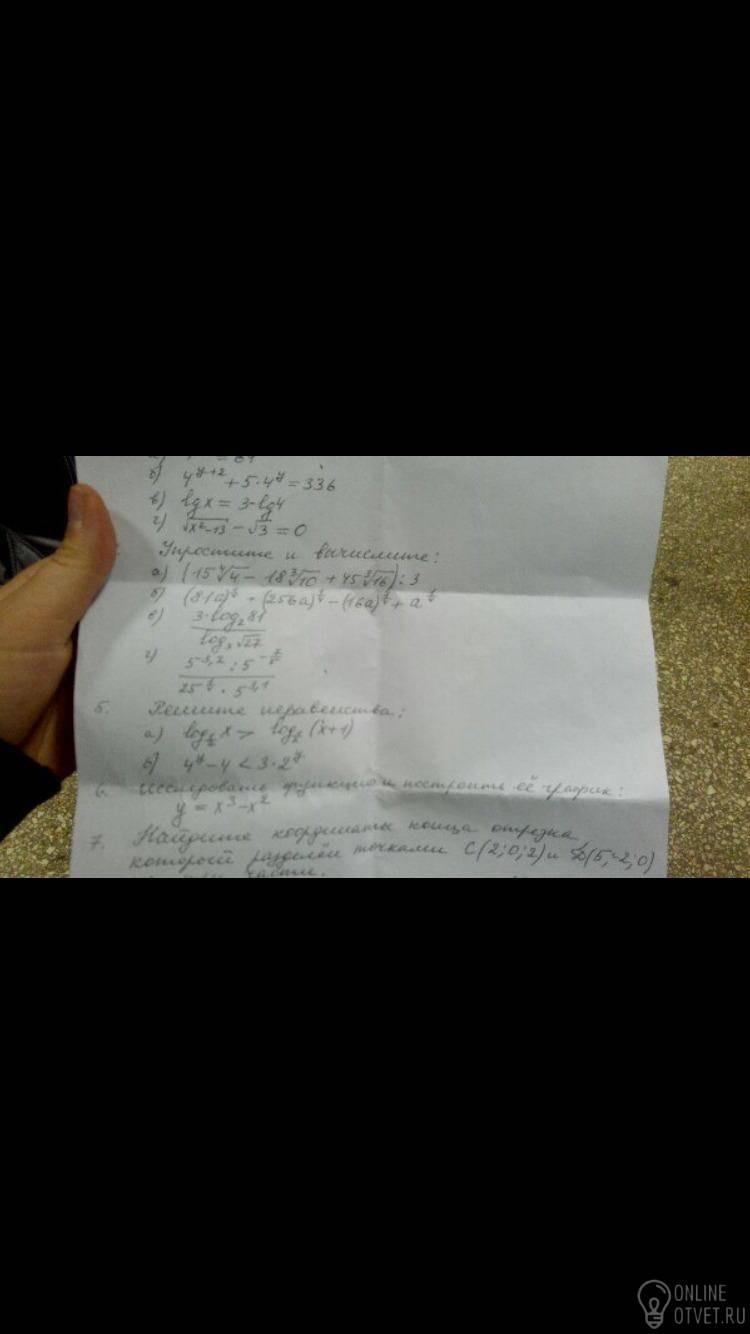 = 64
б) 4^(y+2) + 5·4^y = 336
в) lg x = 3·lg4
г) √(x²-13) - √3 = 0
Упростите и вычислите:
а) (15 ∜4 - 18 ∛10 + 45 ∛16) : 3
б) (81a) + (256a) - (16a) + a
в) 3·log₂81 / log √27
г) 5^(-3,2) : 5 / 25 · 5^(3,1)
5. Решите неравенства:
а) log x > log (x+1)
б) 4^y - 4 < 3·2^y
6. Исследовать функцию и построить её график:
y = x³ - x²
7. Найдите координаты конца отрезка
которой разделён точками C(2;0;2) и D(5;-2;0)
части.
ONLINE
OTVET.RU